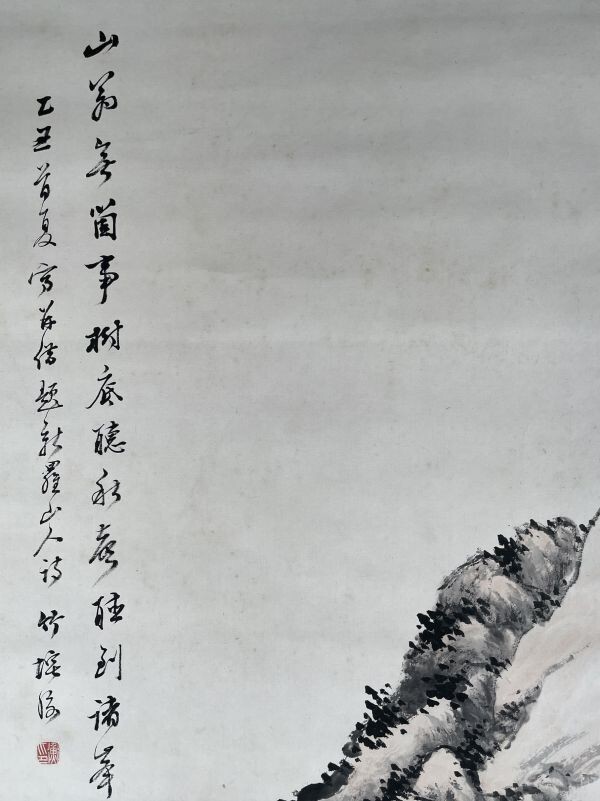 山翁無箇事樹底聽秋声聽到諸峯
乙丑首夏寫并借題新羅山人詩 竹